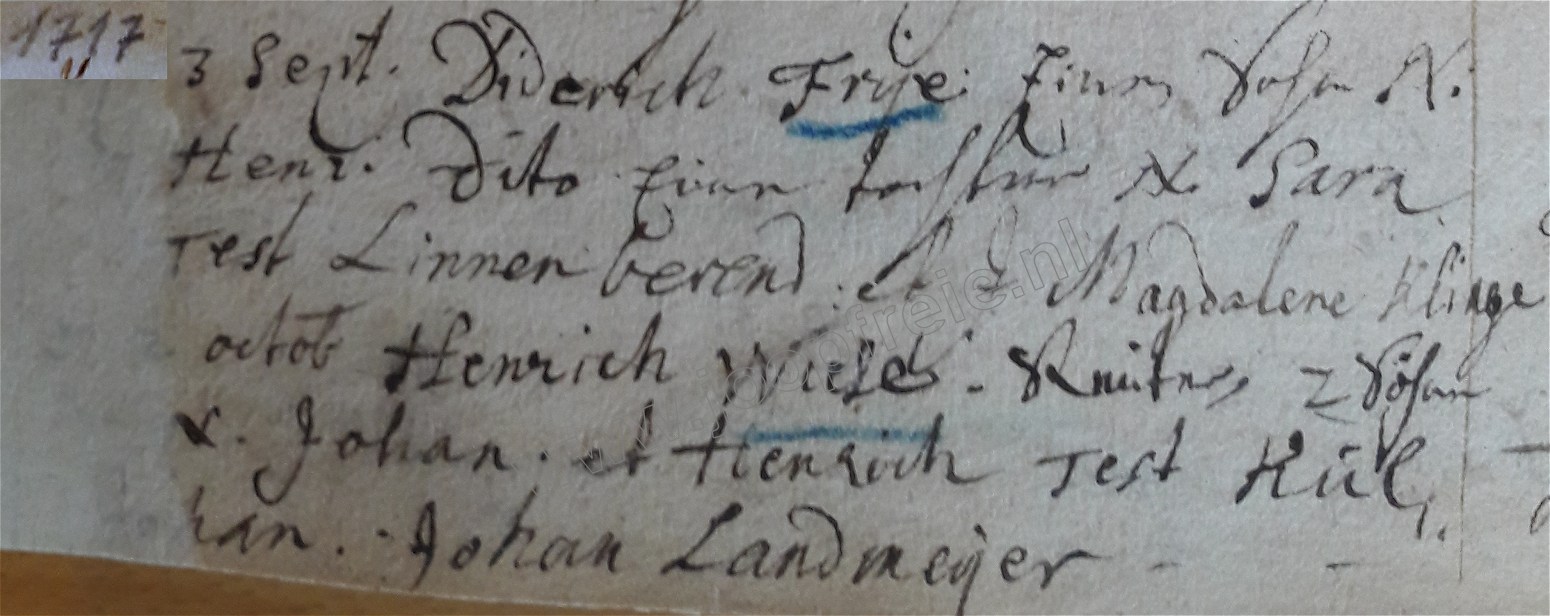 1717
3 Sept. Diderich Frÿe. Einen Sohn N.
Henr. Dito Einen tochter N. Sara
Test Linnen berend et Magdalene Klinge
octob Henrich Wiese - 2 Söhne
N. Johan. et Henrich Test Kül,
han. - Johan Landmeÿer -